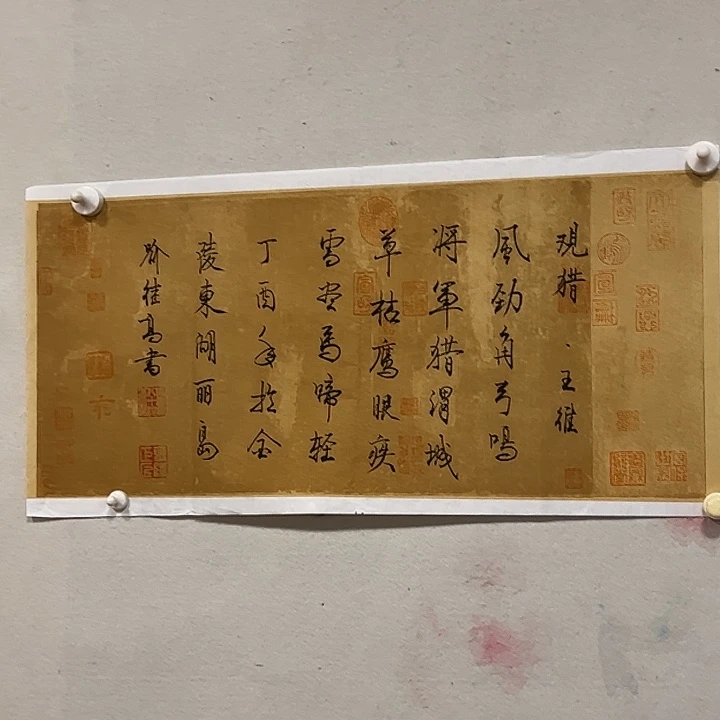 观猎·王维
風劲角弓鳴
将軍猎渭城
草枯鹰眼疾
雪尽馬蹄轻
丁酉年於金
陵東湖丽島
喻继高書